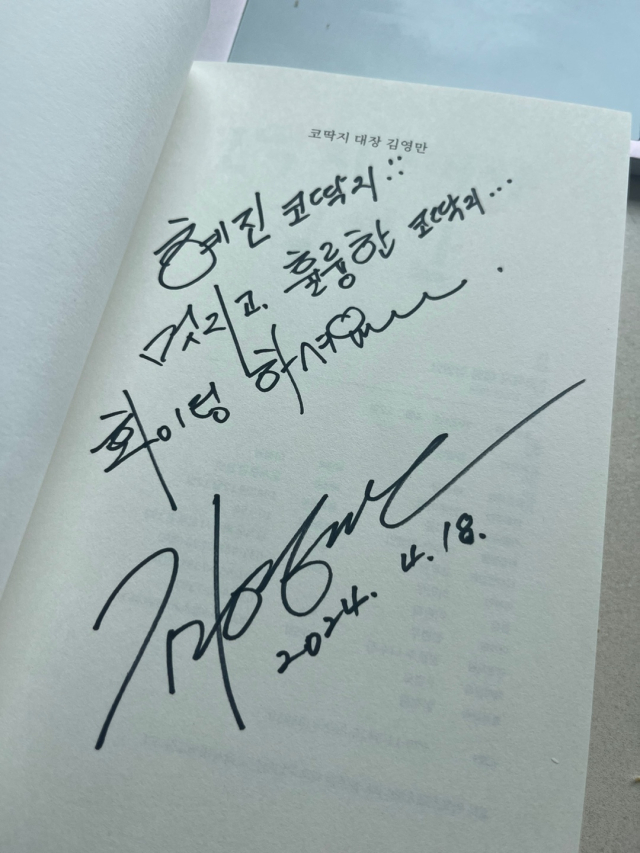 코딱지 대장 김영만
혜진 코딱지!!
멋지고, 훌륭한 코딱지...
화이팅 하세요.
김영만
2024. 4. 18.